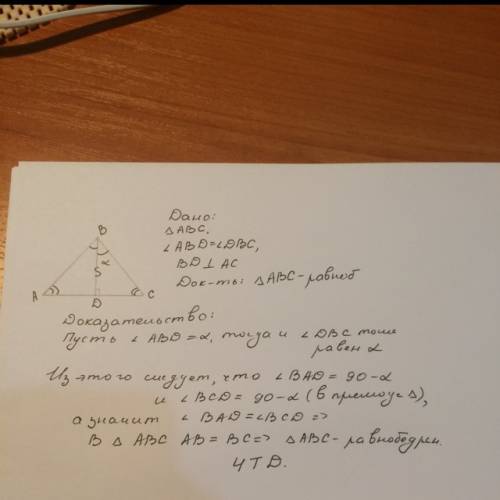 Дано:
△ABC,
∠ABD=∠DBC,
BD⊥AC
Док-ть: △ABC-равноб
B
α
S
A
D
C
Доказательство:
Пусть ∠ABD=α, тогда и ∠DBC тоже
равен α
Из этого следует, что ∠BAD=90-α
и ∠BCD=90-α (в прямоуг △),
а значит ∠BAD=∠BCD=>
В △ABC AB=BC=> △ABC-равнобедрен.
ЧТД.